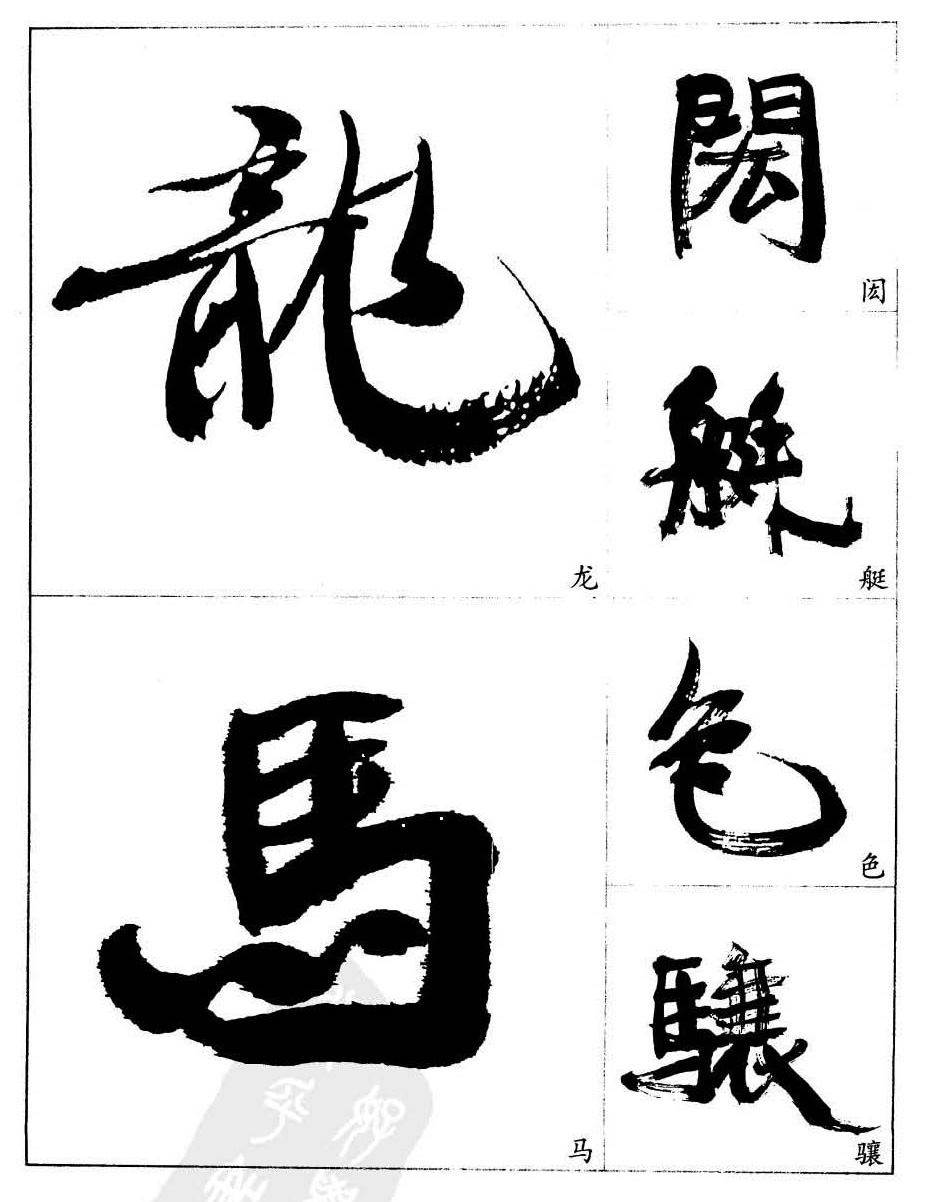 龍
龙
馬
马
閎
闳
艇
艇
色
色
驤
骧